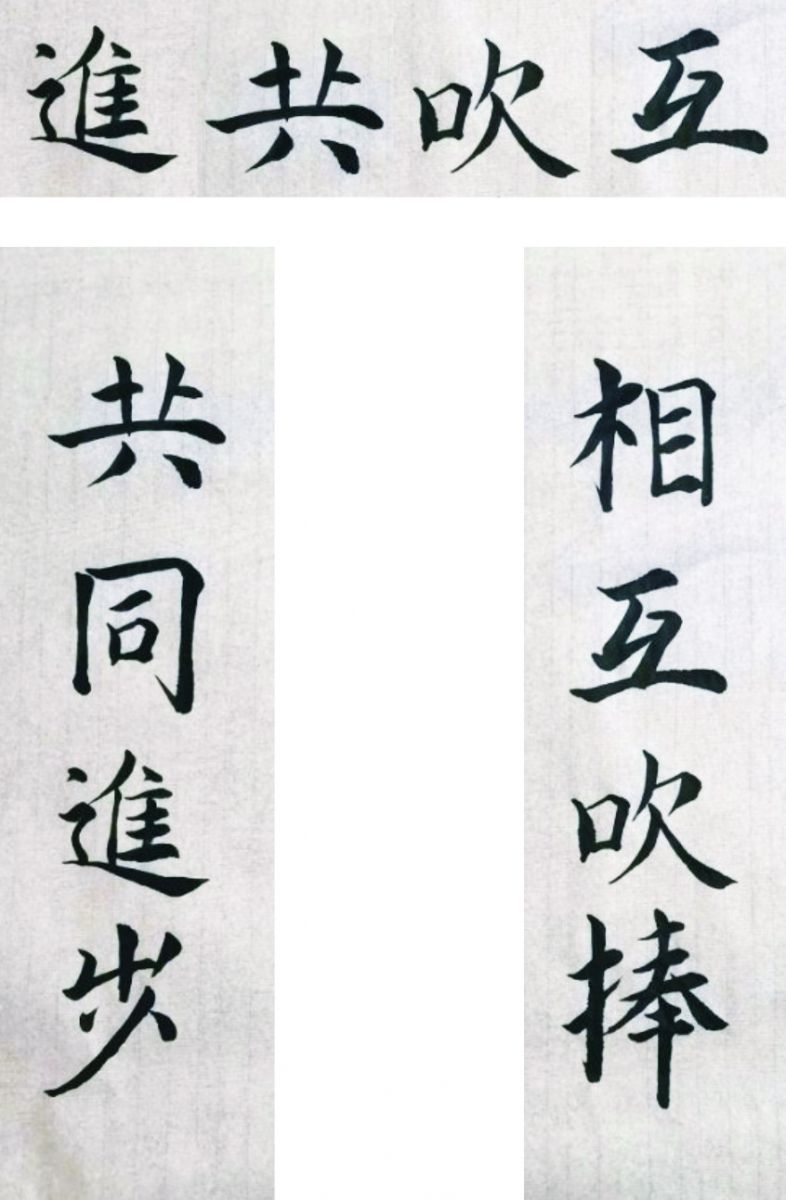 互吹共進
相互吹捧
共同進步